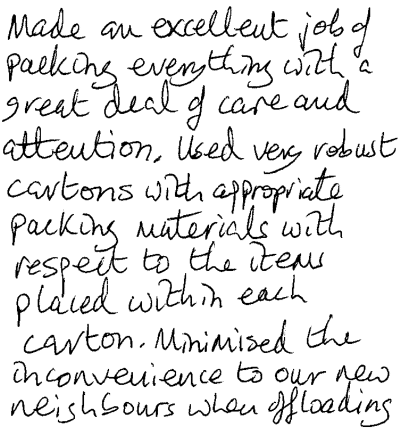 Made an excellent job of
packing everything with a
great deal of care and
attention. Used very robust
cartons with appropriate
packing materials with
respect to the items
placed within each
carton. Minimised the
inconvenience to our new
neighbours when offloading